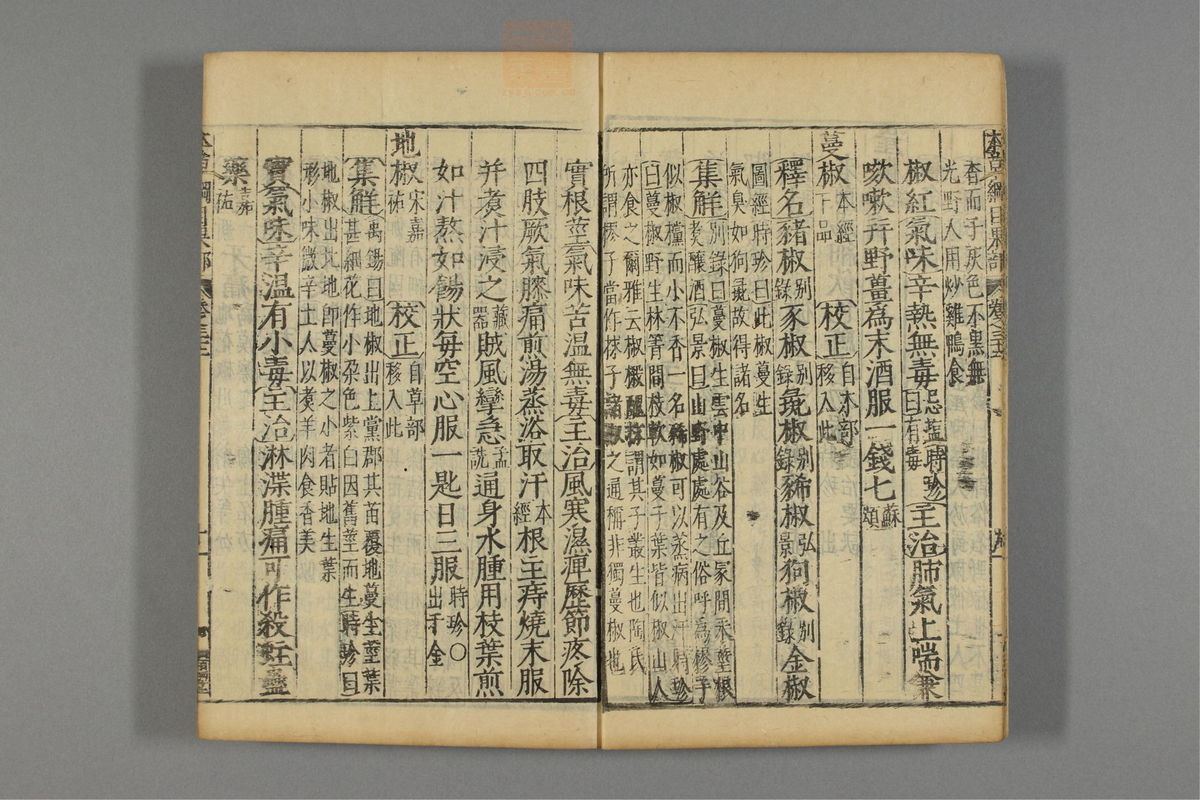 香而子灰色不黑無
光野人用炒雞鴨食
椒紅氣味辛熱無毒忌藍時珍曰有毒主治肺氣上喘兼
咳嗽并野薑為末酒服一錢七蘇頌
蔓椒本經下品校正自木部移入此
釋名豬椒別錄豕椒別錄彘椒別錄豨椒弘景狗椒別錄金椒
圖經時珍曰此椒蔓生
氣臭如狗彘故得諸名
集解別錄曰蔓椒生雲中山谷及丘冢間采莖根
煑釀酒弘景曰山野處處有之俗呼為樛子
似椒欓而小不香一名豨椒可以蒸病出汗時珍
曰蔓椒野生林箐間枝軟如蔓子葉皆似椒山人
亦食之爾雅云椒樧醜莍謂其子叢生也陶氏
所謂樛子當作莍子諸椒之通稱非獨蔓椒也
實根莖氣味苦溫無毒主治風寒濕痺歷節疼除
四肢厥氣膝痛煎湯蒸浴取汗本經根主痔燒末服
并煑汁浸之藏器賊風攣急孟詵通身水腫用枝葉煎
如汁熬如餳狀每空心服一匙日三服時珍○出千金
地椒宋嘉祐校正自草部移入此
集解禹錫曰地椒出上黨郡其苗覆地蔓生莖葉
甚細花作小朶色紫白因舊莖而生時珍曰
地椒出北地即蔓椒之小者貼地生葉
形小味微辛土人以煑羊肉食香美
實氣味辛溫有小毒主治淋渫腫痛可作殺蛀蠱
藥嘉祐